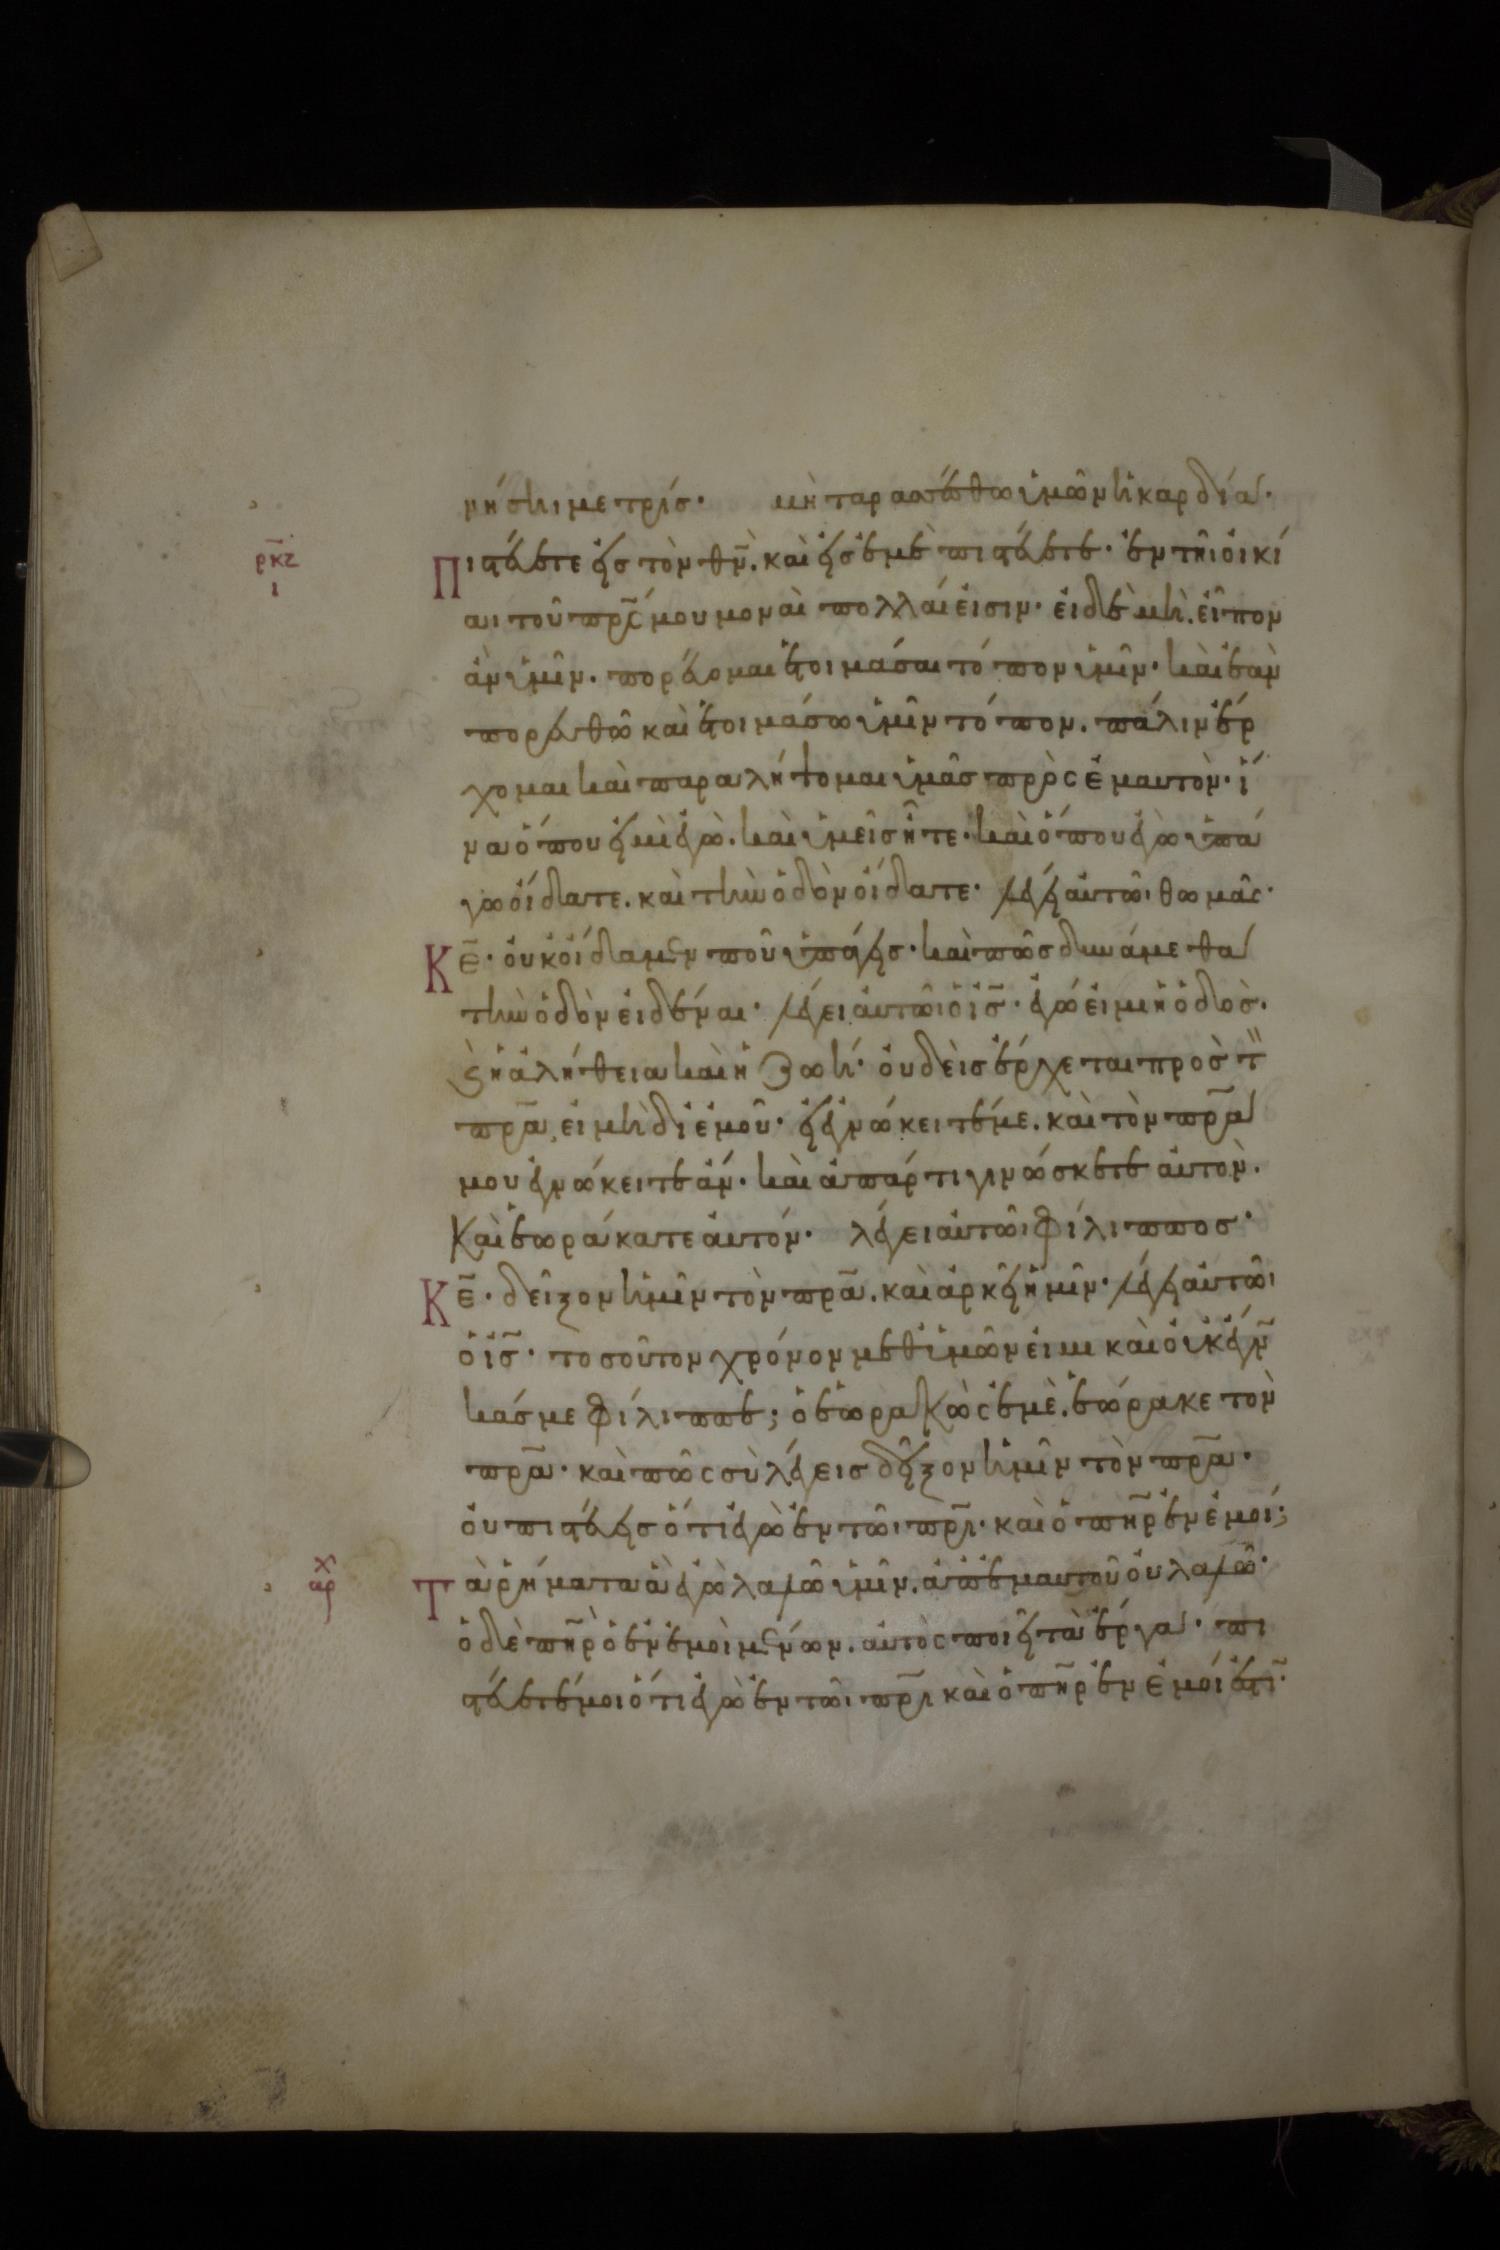 νήση με τρίς· μὴ ταρασσέσθω ὑμῶν ἡ καρδία·
ρκϛ
ι
Πιστεύετε εἰς τὸν θν̄. καὶ εἰς ἐμὲ πιστεύετε· ἐν τῆι οἰκί
αι τοῦ πρ̄ς μου μοναὶ πολλαί εἰσιν· εἰ δὲ μὴ. εἶπον
ἂν ὑμῖν. πορεύομαι ἑτοιμάσαι τόπον ὑμῖν· καὶ ἐὰν
πορευθῶ καὶ ἑτοιμάσω ὑμῖν τόπον. πάλιν ἔρ
χομαι καὶ παραλήψομαι ὑμᾶς πρὸς ἐμαυτὸν· ἵ
να ὅπου εἰμὶ ἐγὼ. καὶ ὑμεῖς ἦτε· καὶ ὅπου ἐγὼ ὑπά
γω οἴδατε. καὶ τὴν ὁδὸν οἴδατε· λέγει αὐτῶι θωμᾶς·
Κε̄· οὐκ οἴδαμεν ποῦ ὑπάγεις· καὶ πῶς δυνάμεθα
τὴν ὁδὸν εἰδέναι· λέγει αὐτῶι ὁ ις̄· ἐγώ εἰμι ἡ ὁδὸς.
ϗ ἡ ἀλήθεια καὶ ἡ ζωή· οὐδεὶς ἔρχεται πρὸς τ̏
πρ̄α, εἰ μὴ δι' ἐμοῦ· εἰ ἐγνώκειτέ με. καὶ τὸν πρ̄α
μου ἐγνώκειτε ἄν· καὶ ἀπάρτι γινώσκετε αὐτὸν.
Καὶ ἑωράκατε αὐτόν· λέγει αὐτῶι Φίλιππος·
Κε̄· δεῖξον ἡμῖν τὸν πρ̄α. καὶ ἀρκεῖ ἡμῖν· λέγει αὐτῶι
ὁ ις̄· τοσοῦτον χρόνον μεθ' ὑμῶν εἰμι καὶ οὐκ ἔγν̄
κάς με Φίλιππε; ὁ ἑωρακὼς ἐμὲ. ἑώρακε τὸν
πρ̄α· καὶ πῶς σὺ λέγεις δεῖξον ἡμῖν τὸν πρ̄α·
οὐ πιστεύεις ὅτι ἐγὼ ἐν τῶι πρ̄ι· καὶ ὁ πη̄ρ ἐν ἐμοί;
Τὰ ῥήματα ἃ ἐγὼ λαλῶ ὑμῖν. ἀπ' ἐμαυτοῦ οὐ λαλῶ·
ὁ δὲ πη̄ρ ὁ ἐν ἐμοὶ μένων. αὐτὸς ποιεῖ τὰ ἔργα· πι
στεύετέ μοι ὅτι ἐγὼ ἐν τῶι πρ̄ι καὶ ὁ πη̄ρ ἐν ἐμοί ἐστῑ·